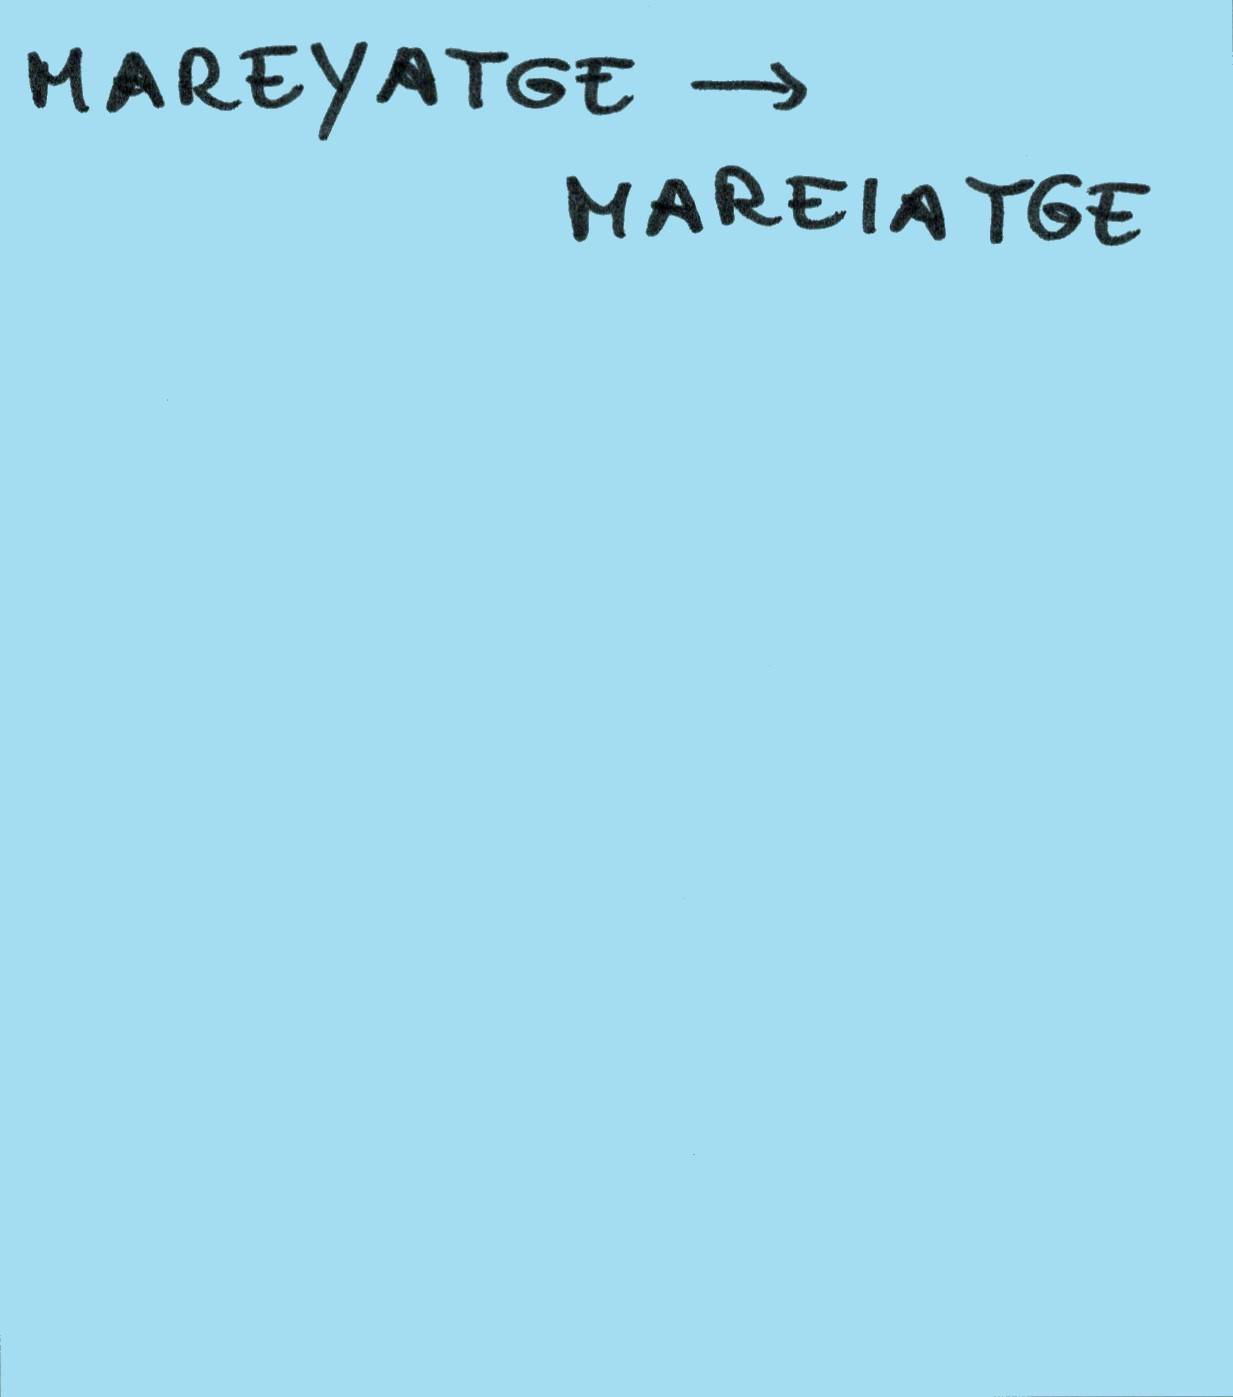 MAREYATGE →
MAREIATGE